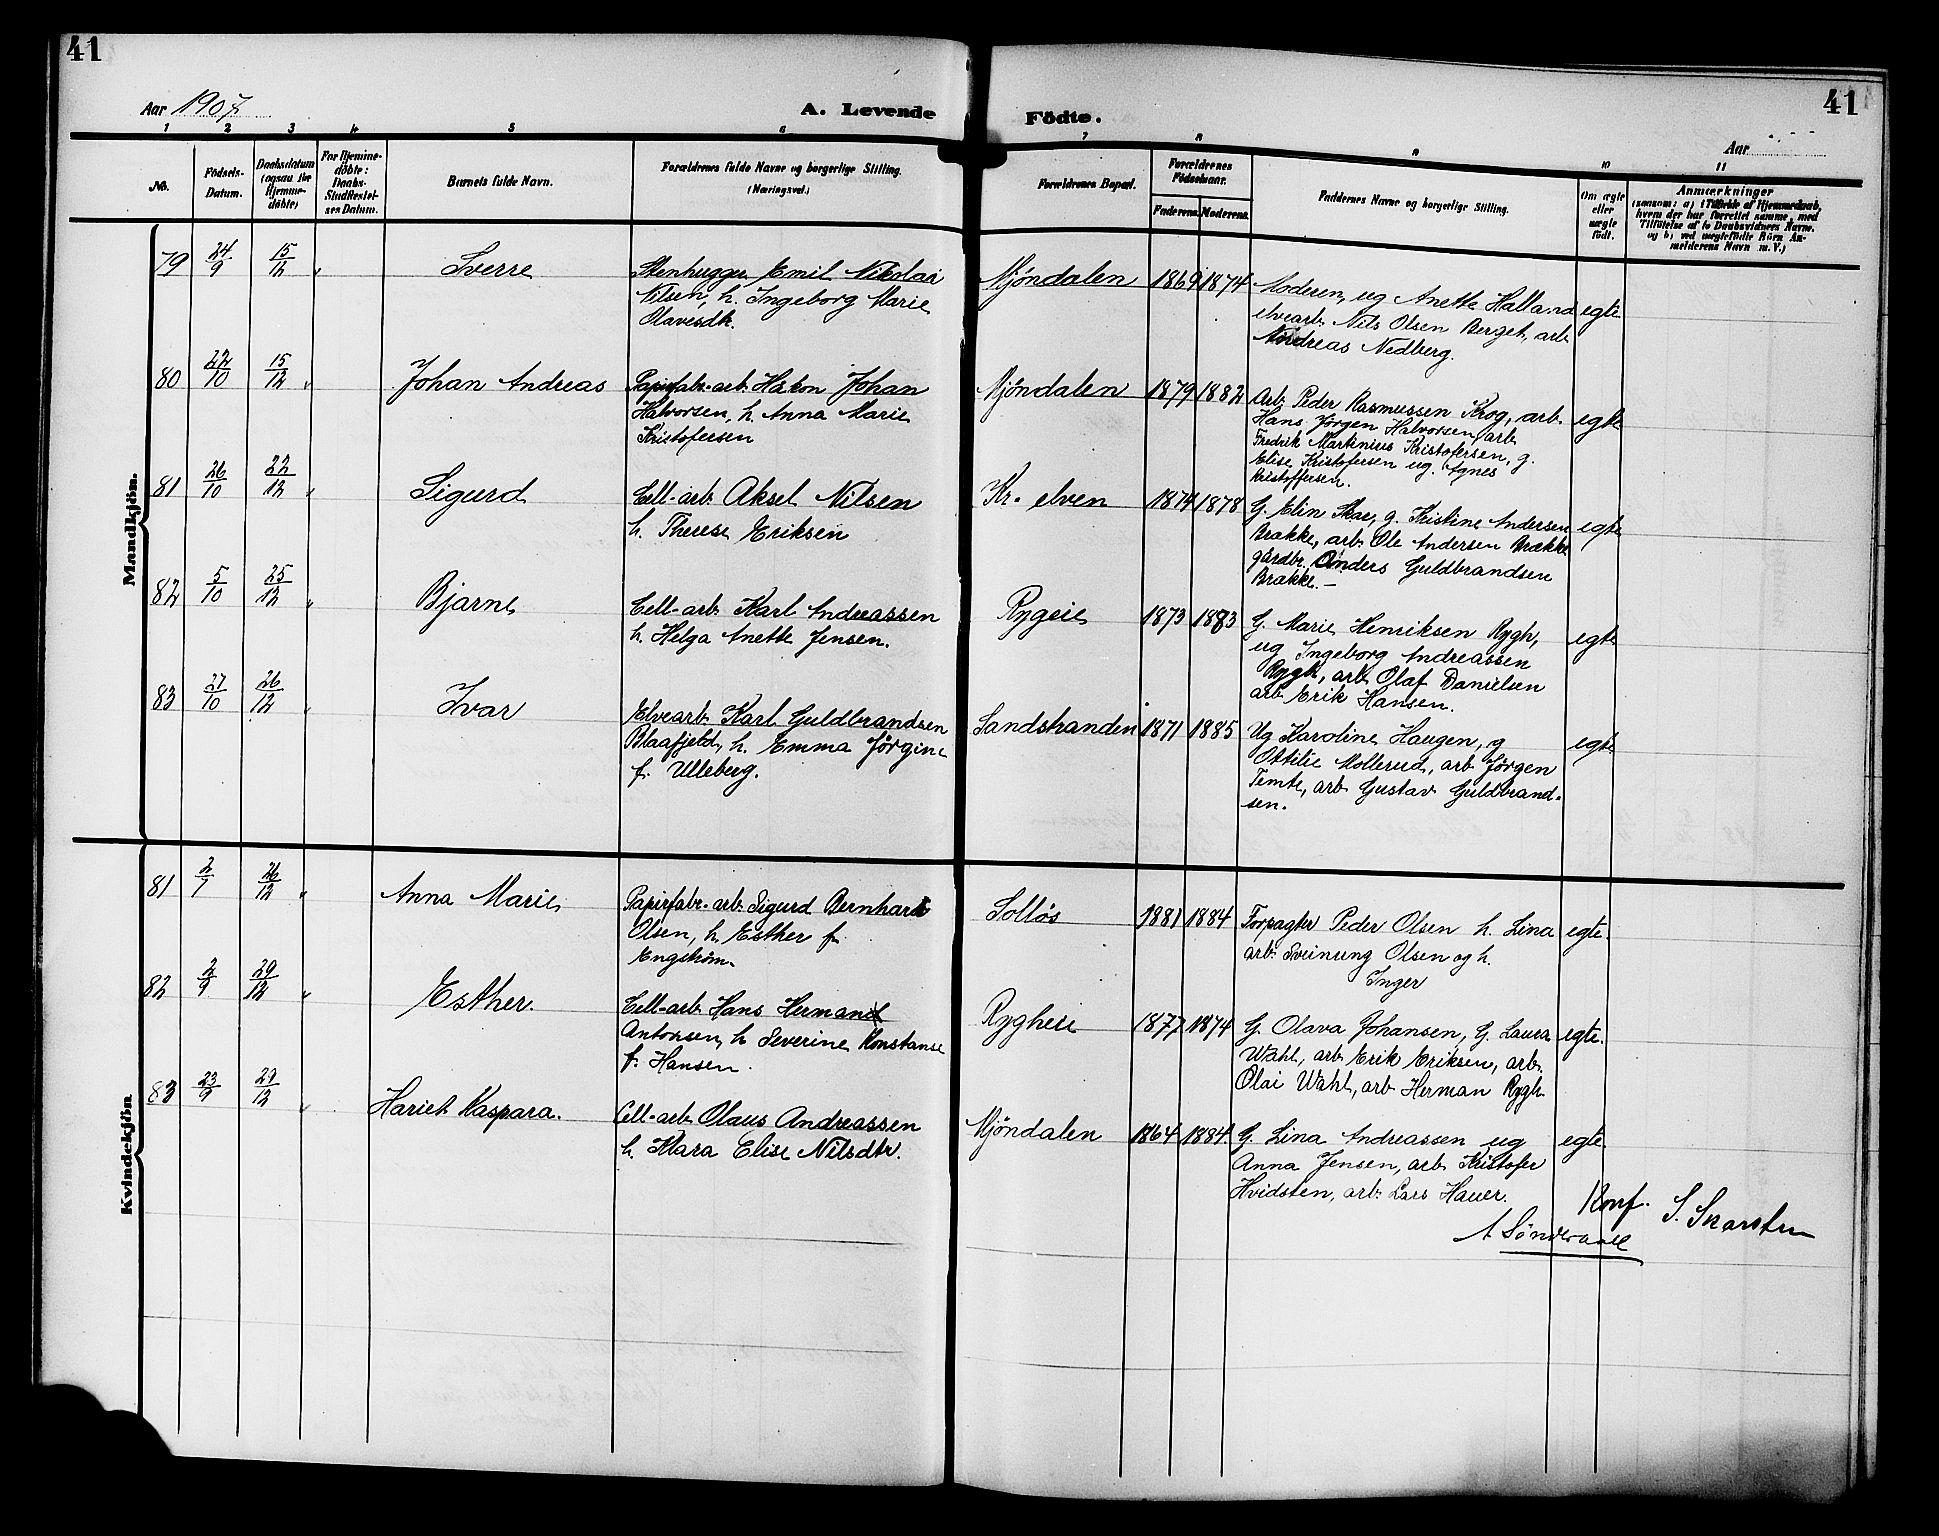 41
41
Aar 1907
A. Levende
Födte.
Aar
1 2 3 4 5 6 7 8 9 10 11
No.
Födsels-
Datum.
Daabsdatum
(ogsaa for
Hjemme-
döbte)
For Hjemme-
döbte:
Daabs-
Stadfæstel-
ses Datum.
Barnets fulde Navn.
Forældrenes fulde Navne og borgerlige Stilling.
(Næringsvei.)
Forældrenes Bopæl.
Forældrenes
Födselsaar.
Faderens. Moderens.
Faddernes Navne og borgerlige Stilling.
Om ægte
eller
uægte
født.
Anmærkninger
(saasom: a) i Tilfælde af Hjemmedaab,
hvem der har forrettet samme, med
Tilføielse af to Daabsvidners Navne.
og b) ved uægtefödte Börn An-
melderens Navn m. V.)
Mandkjön.
79 24/9 15/12 " Sverre
Stenhugger Emil Nikolai
Nilsen, h. Ingeborg Marie
Olavesdtr.
Mjöndalen 1869 1874
Moderen, ug Anette Halland
elvearb. Nils Olsen Berget, arb.
Andreas Nedberg.
egte
80 22/10 15/12 " Johan Andreas
Papirfabr.-arb. Hakon Johan
Halvorsen, h. Anna Marie
Kristofersen
Mjöndalen 1879 1882
Arb. Peder Rasmussen Krog, arb.
Hans Jörgen Halvorsen, arb.
Fredrik Martinius Kristofersen, g.
Elise Kristofersen ug. Agnes
Kristoffersen.
egte
81 26/10 22/12 " Sigurd
Cell-arb. Aksel Nilsen
h. Therese Eriksen
Kr. elven 1874 1878
G. Elin Skar, g. Kristine Andersen
Brække, arb. Ole Andersen Brække
gårdbr. Anders Guldbrandsen
Brække.-
egte
82 5/10 25/12 " Bjarne
Cell-arb. Karl Andreassen
h. Helga Anette Jensen.
Rygeie 1873 1883
G. Marie Henriksen Rygh,
ug Ingeborg Andreassen
Rygh, arb. Olaf Danielsen
arb. Erik Hansen.
egte
83 27/10 26/12 " Ivar
Elvearb. Karl Guldbrandsen
Blaafjeld, h. Emma Jörgine
f. Ulleberg.
Sandstranden 1871 1885
Ug Karoline Haugen, g
Ottilie Mollerud, arb. Jörgen
Temte, arb. Gustav Guldbrand-
sen.
egte
Kvindekjön
81 2/7 26/12 " Anna Marie
Papirfabr.-arb. Sigurd Bernhard
Olsen, h. Esther f.
Engström.
Solløs 1881 1884
Forpagter Peder Olsen h. Lina
arb. Sveinung Olsen og h.
Inger
egte.
82 2/9 29/12 " Esther.
Cell-arb. Hans Herman
Antonsen, h Severine Konstanse
f. Hansen.
Rygheie 1877 1874
G. Olava Johansen, G. Laura
Wahl, arb. Erik Eriksen, arb.
Olai Wahl, arb. Herman Rygh.
egte.
83 23/9 29/12 " Hariet Kaspara.
Cell-arb. Olaus Andreassen
h. Klara Elise Nilsdtr.
Mjöndalen 1864 1884
G. Lina Andreassen ug
Anna Jensen, arb. Kristofer
Hvidsten, arb. Lars Hauer.
egte.
Konf. S. Skarsten
A Sønderaal